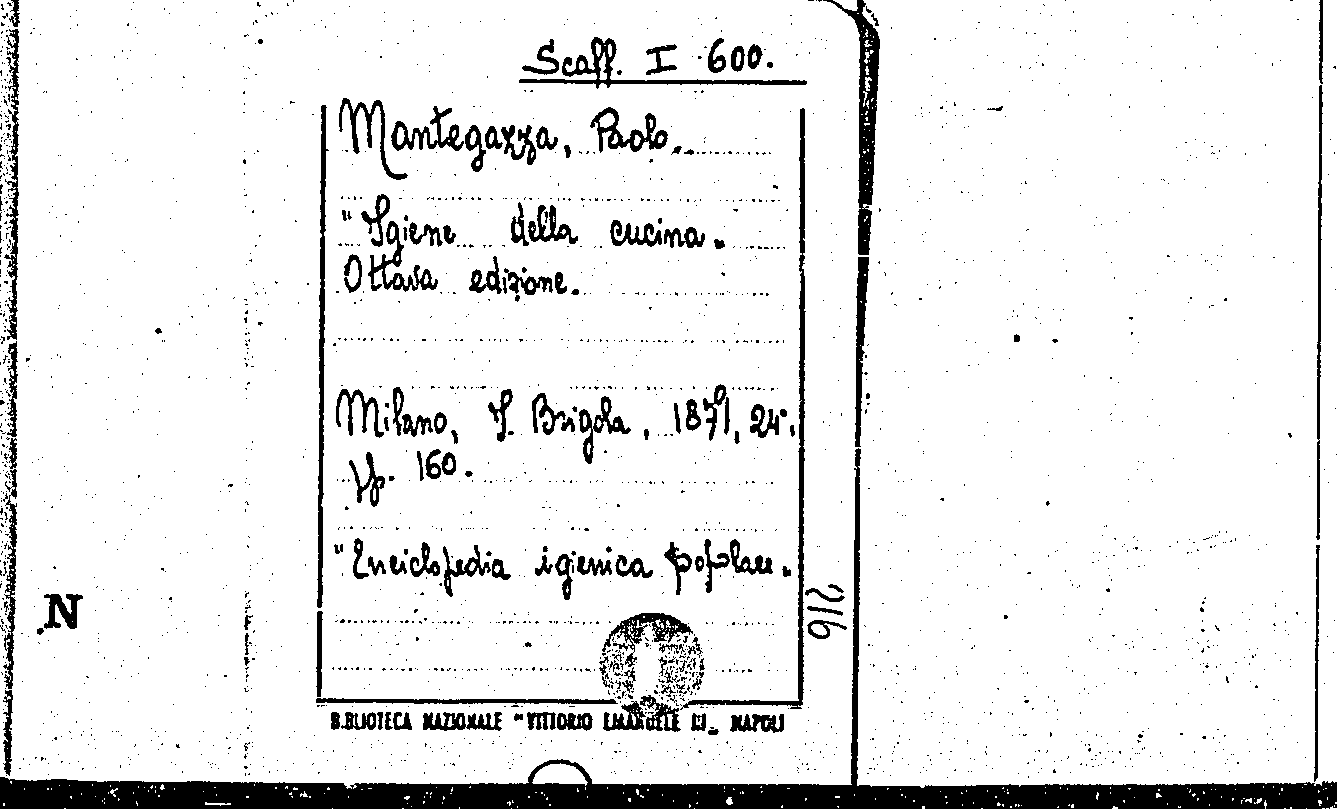 Scaff. I 600.
Mantegazza, Paolo.
"Igiene della cucina.
Ottava edizione.
Milano, G. Brigola, 1871, 24°.
pp. 160.
"Enciclopedia igienica popolare.
216
N
BIBLIOTECA NAZIONALE "VITTORIO EMANUELE III„ NAPOLI